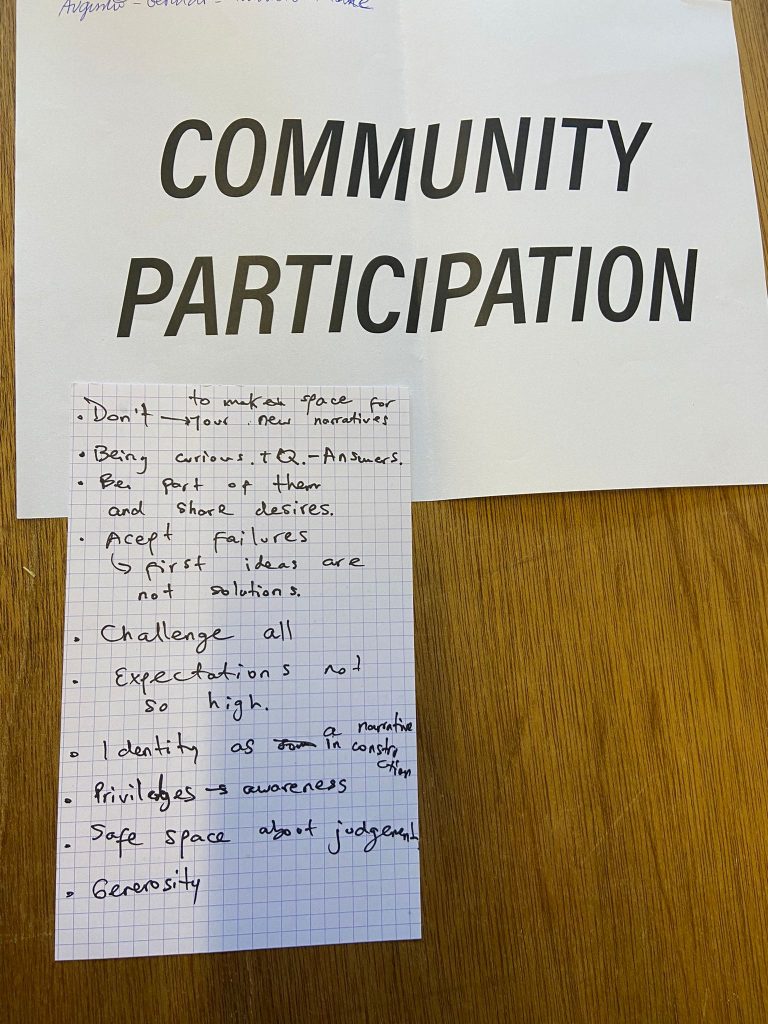 Augustin -
COMMUNITY
PARTICIPATION
to make space for
• Don't → your new narratives
• Being curious. + Q. - Answers.
• Be part of them
and share desires.
• Acept failures
↳ first ideas are
not solutions.
• Challenge all
• Expectations not
so high.
• Identity as a narrative
in constru
ction
• Privileges → awareness
• Safe space about judgement
• Generosity